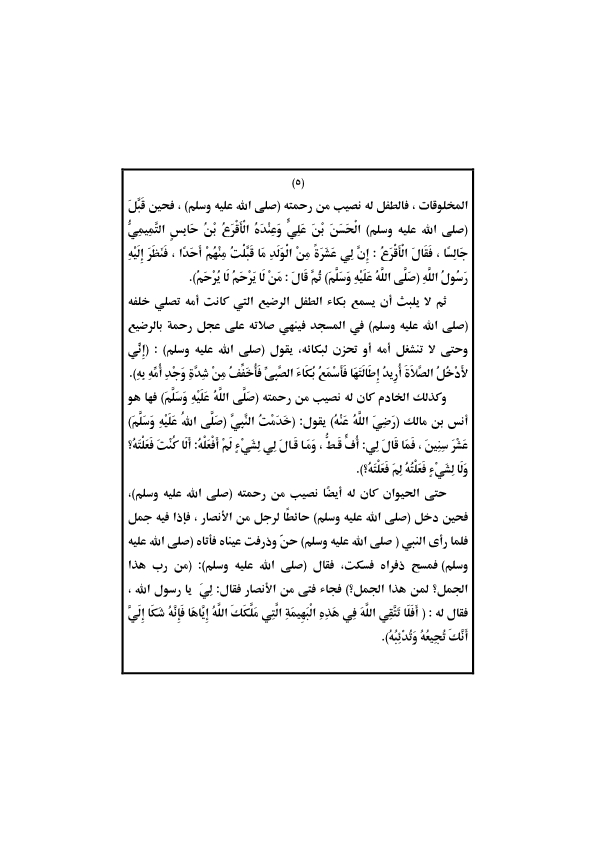 (٥)
المخلوقات ، فالطفل له نصيب من رحمته (صلى الله عليه وسلم) ، فحين قَبَّلَ
(صلى الله عليه وسلم) الْحَسَنَ بْنَ عَلِيٍّ وَعِنْدَهُ الْأَقْرَعُ بْنُ حَابِسٍ التَّمِيمِيُّ
جَالِسًا ، فَقَالَ الْأَقْرَعُ : إِنَّ لِي عَشَرَةً مِنْ الْوَلَدِ مَا قَبَّلْتُ مِنْهُمْ أَحَدًا ، فَنَظَرَ إِلَيْهِ
رَسُولُ اللَّهِ (صَلَّى اللَّهُ عَلَيْهِ وَسَلَّمَ) ثُمَّ قَالَ : مَنْ لَا يَرْحَمُ لَا يُرْحَمُ).
ثم لا يلبث أن يسمع بكاء الطفل الرضيع التي كانت أمه تصلي خلفه
(صلى الله عليه وسلم) في المسجد فينهي صلاته على عجل رحمة بالرضيع
وحتى لا تنشغل أمه أو تحزن لبكائه، يقول (صلى الله عليه وسلم) : (إِنِّي
لأَدْخُلُ الصَّلاَةَ أُرِيدُ إِطَالَتَهَا فَأَسْمَعُ بُكَاءَ الصَّبِىِّ فَأُخَفِّفُ مِنْ شِدَّةِ وَجْدِ أُمِّهِ بِهِ).
وكذلك الخادم كان له نصيب من رحمته (صَلَّى اللَّهُ عَلَيْهِ وَسَلَّمَ) فها هو
أنس بن مالك (رَضِيَ اللَّهُ عَنْهُ) يقول: (خَدَمْتُ النَّبِيَّ (صَلَّى اللهُ عَلَيْهِ وَسَلَّمَ)
عَشْرَ سِنِينَ ، فَمَا قَالَ لِي: أُفٍّ قَطُّ ، وَمَا قَالَ لِي لِشَيْءٍ لَمْ أَفْعَلْهُ: أَلَا كُنْتَ فَعَلْتَهُ؟
وَلَا لِشَيْءٍ فَعَلْتُهُ لِمَ فَعَلْتَهُ؟).
حتى الحيوان كان له أيضًا نصيب من رحمته (صلى الله عليه وسلم)،
فحين دخل (صلى الله عليه وسلم) حائطًا لرجل من الأنصار ، فإذا فيه جمل
فلما رأى النبي ( صلى الله عليه وسلم) حنّ وذرفت عيناه فأتاه (صلى الله عليه
وسلم) فمسح ذفراه فسكت، فقال (صلى الله عليه وسلم): (من رب هذا
الجمل؟ لمن هذا الجمل؟) فجاء فتى من الأنصار فقال: لِيَ يا رسول الله ،
فقال له : ( أَفَلَا تَتَّقِي اللَّهَ فِي هَذِهِ الْبَهِيمَةِ الَّتِي مَلَّكَكَ اللَّهُ إِيَّاهَا فَإِنَّهُ شَكَا إِلَيَّ
أَنَّكَ تُجِيعُهُ وَتُدْئِبُهُ).